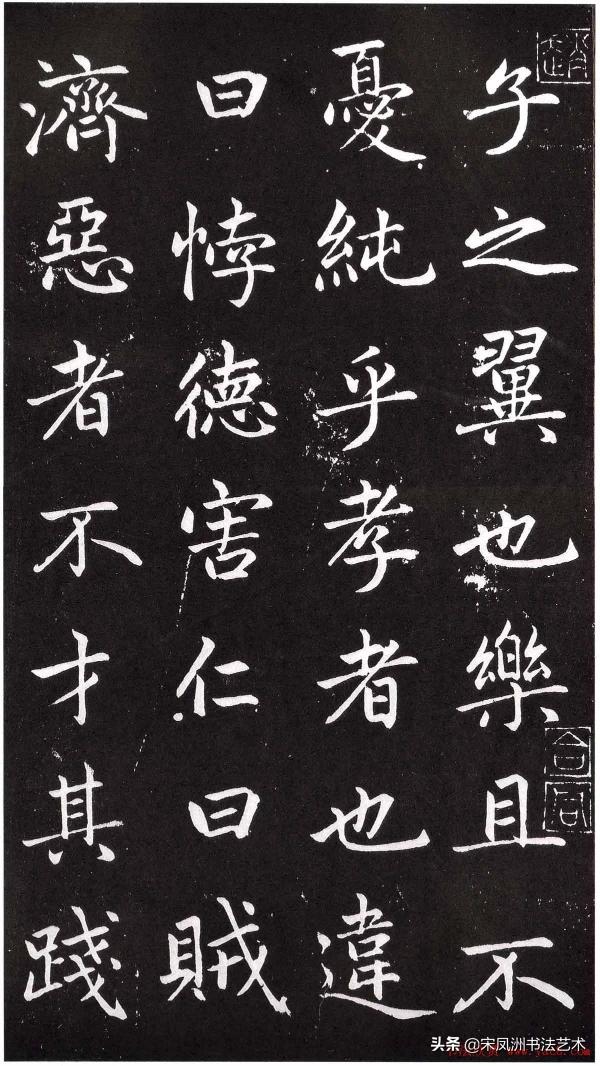 子之翼也樂且不
憂純乎孝者也違
曰悖德害仁曰賊
濟惡者不才其踐
头条 @宋凤洲书法艺术